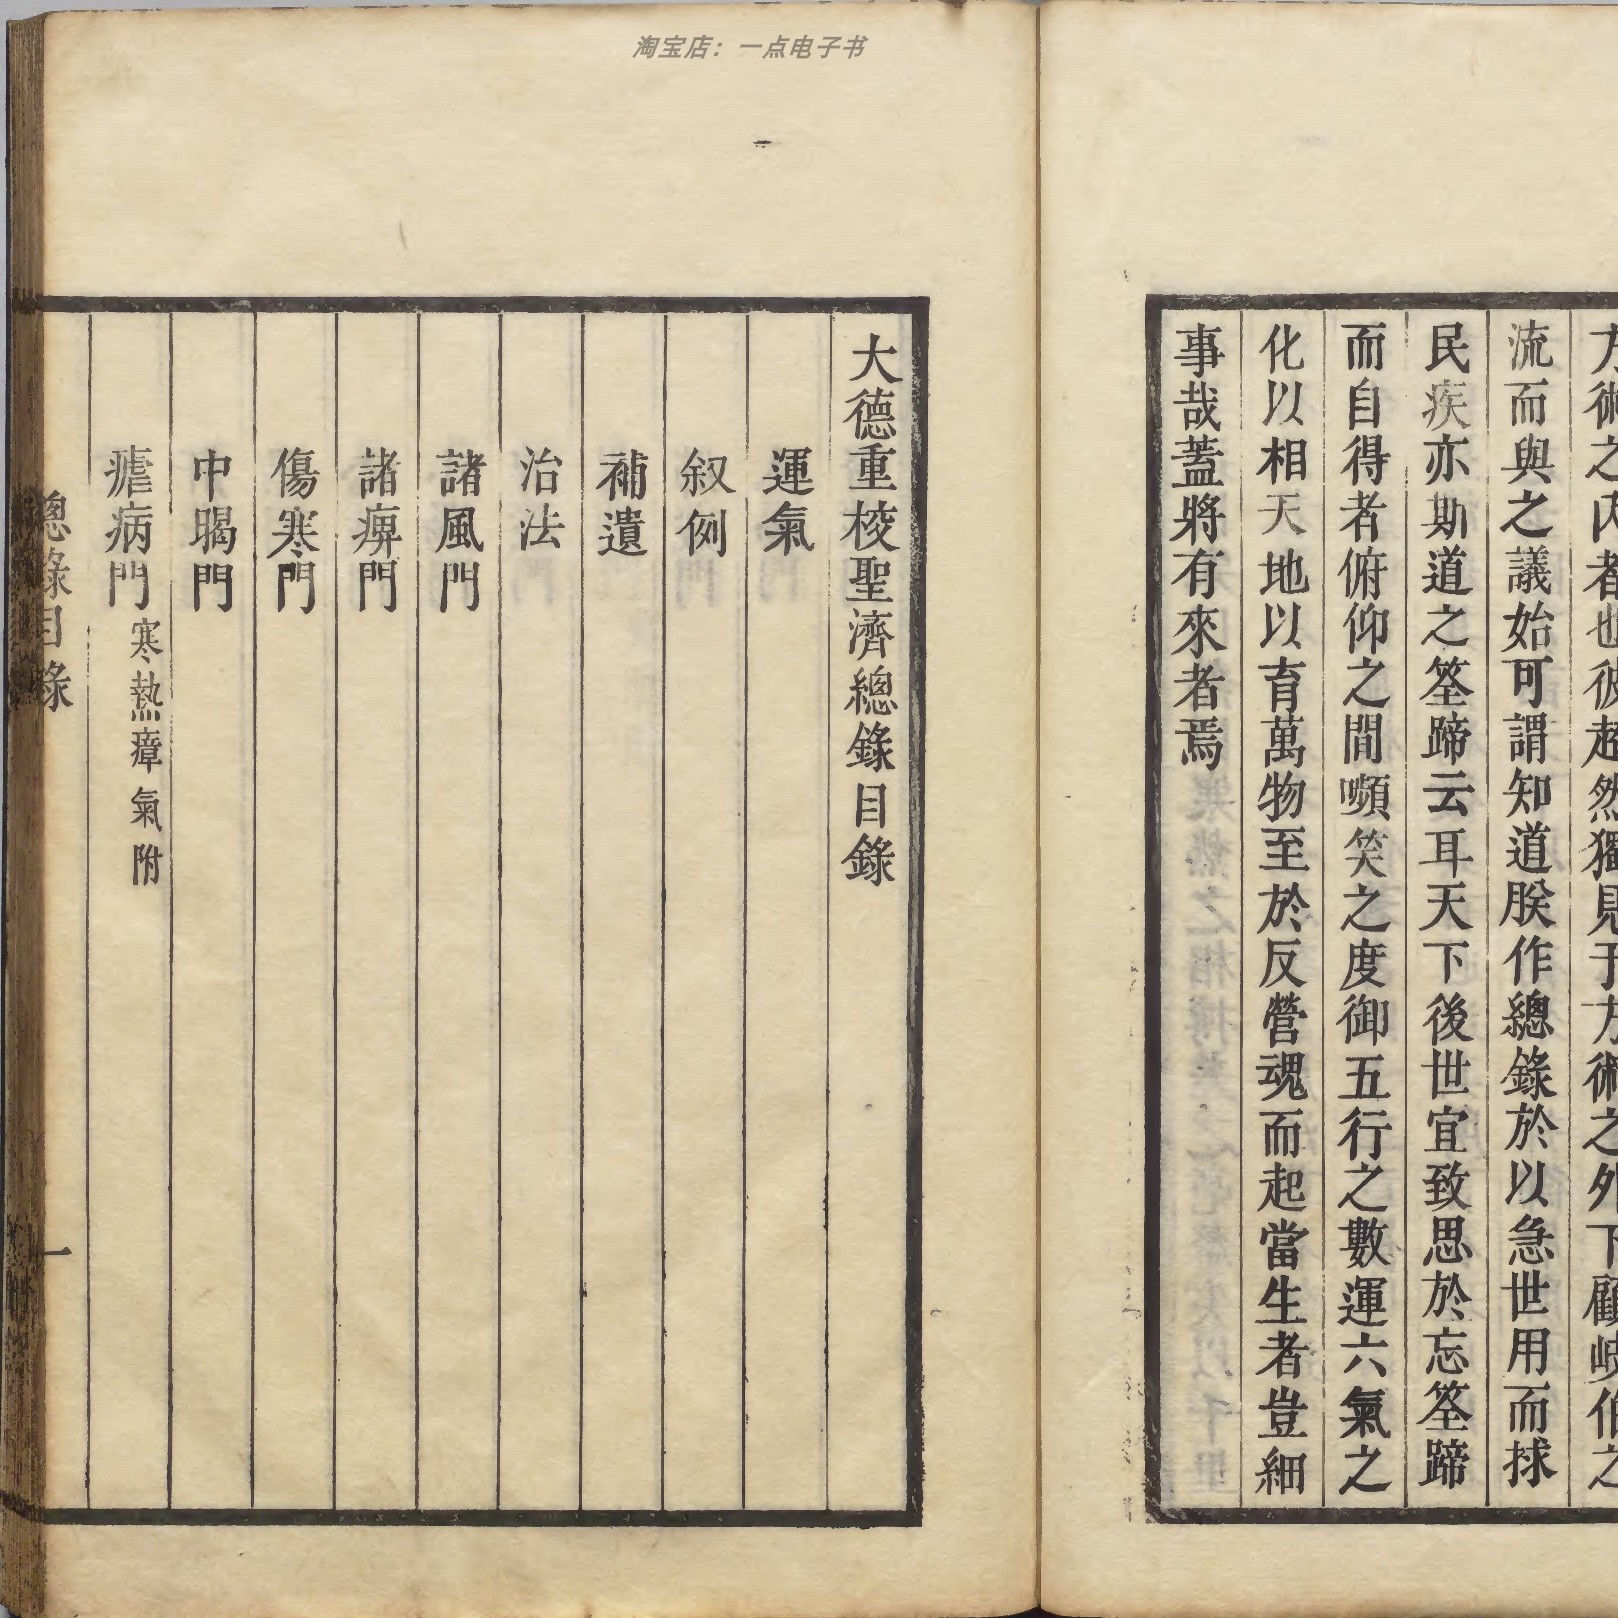 淘宝店：一点电子书
方術之内者也彼超然獨見于方術之外下顧岐伯之
流而與之議始可謂知道朕作總錄於以急世用而捄
民疾亦斯道之筌蹄云耳天下後世宜致思於忘筌蹄
而自得者俯仰之間嚬笑之度御五行之數運六氣之
化以相天地以育萬物至於反營魂而起當生者豈細
事哉蓋將有來者焉
大德重校聖濟總錄目錄
運氣
叙例
補遺
治法
諸風門
諸痹門
傷寒門
中暍門
瘧病門寒熱瘴氣附
總錄目錄 一